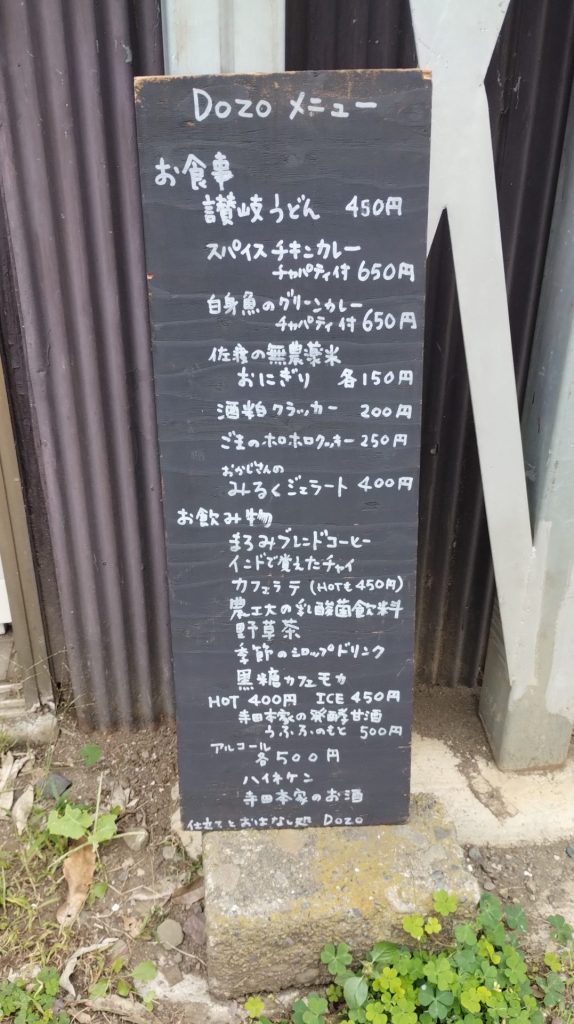 Dozo メニュー
お食事
讃岐うどん 450円
スパイスチキンカレー
チャパティ付 650円
白身魚のグリーンカレー
チャパティ付 650円
佐彦の無農薬米
おにぎり 各150円
酒粕クラッカー 200円
ごまのホロホロクッキー 250円
おかじさんの
みるくジェラート 400円
お飲み物
まろみブレンドコーヒー
インドで覚えたチャイ
カフェラテ (HOTも450円)
農工大の乳酸菌飲料
野草茶
季節のシロップドリンク
黒糖カフェモカ
HOT 400円 ICE 450円
寺田本家の発酵甘酒
うふふのもと 500円
アルコール
各500円
ハイネケン
寺田本家のお酒
仕立てとおはなし処 Dozo